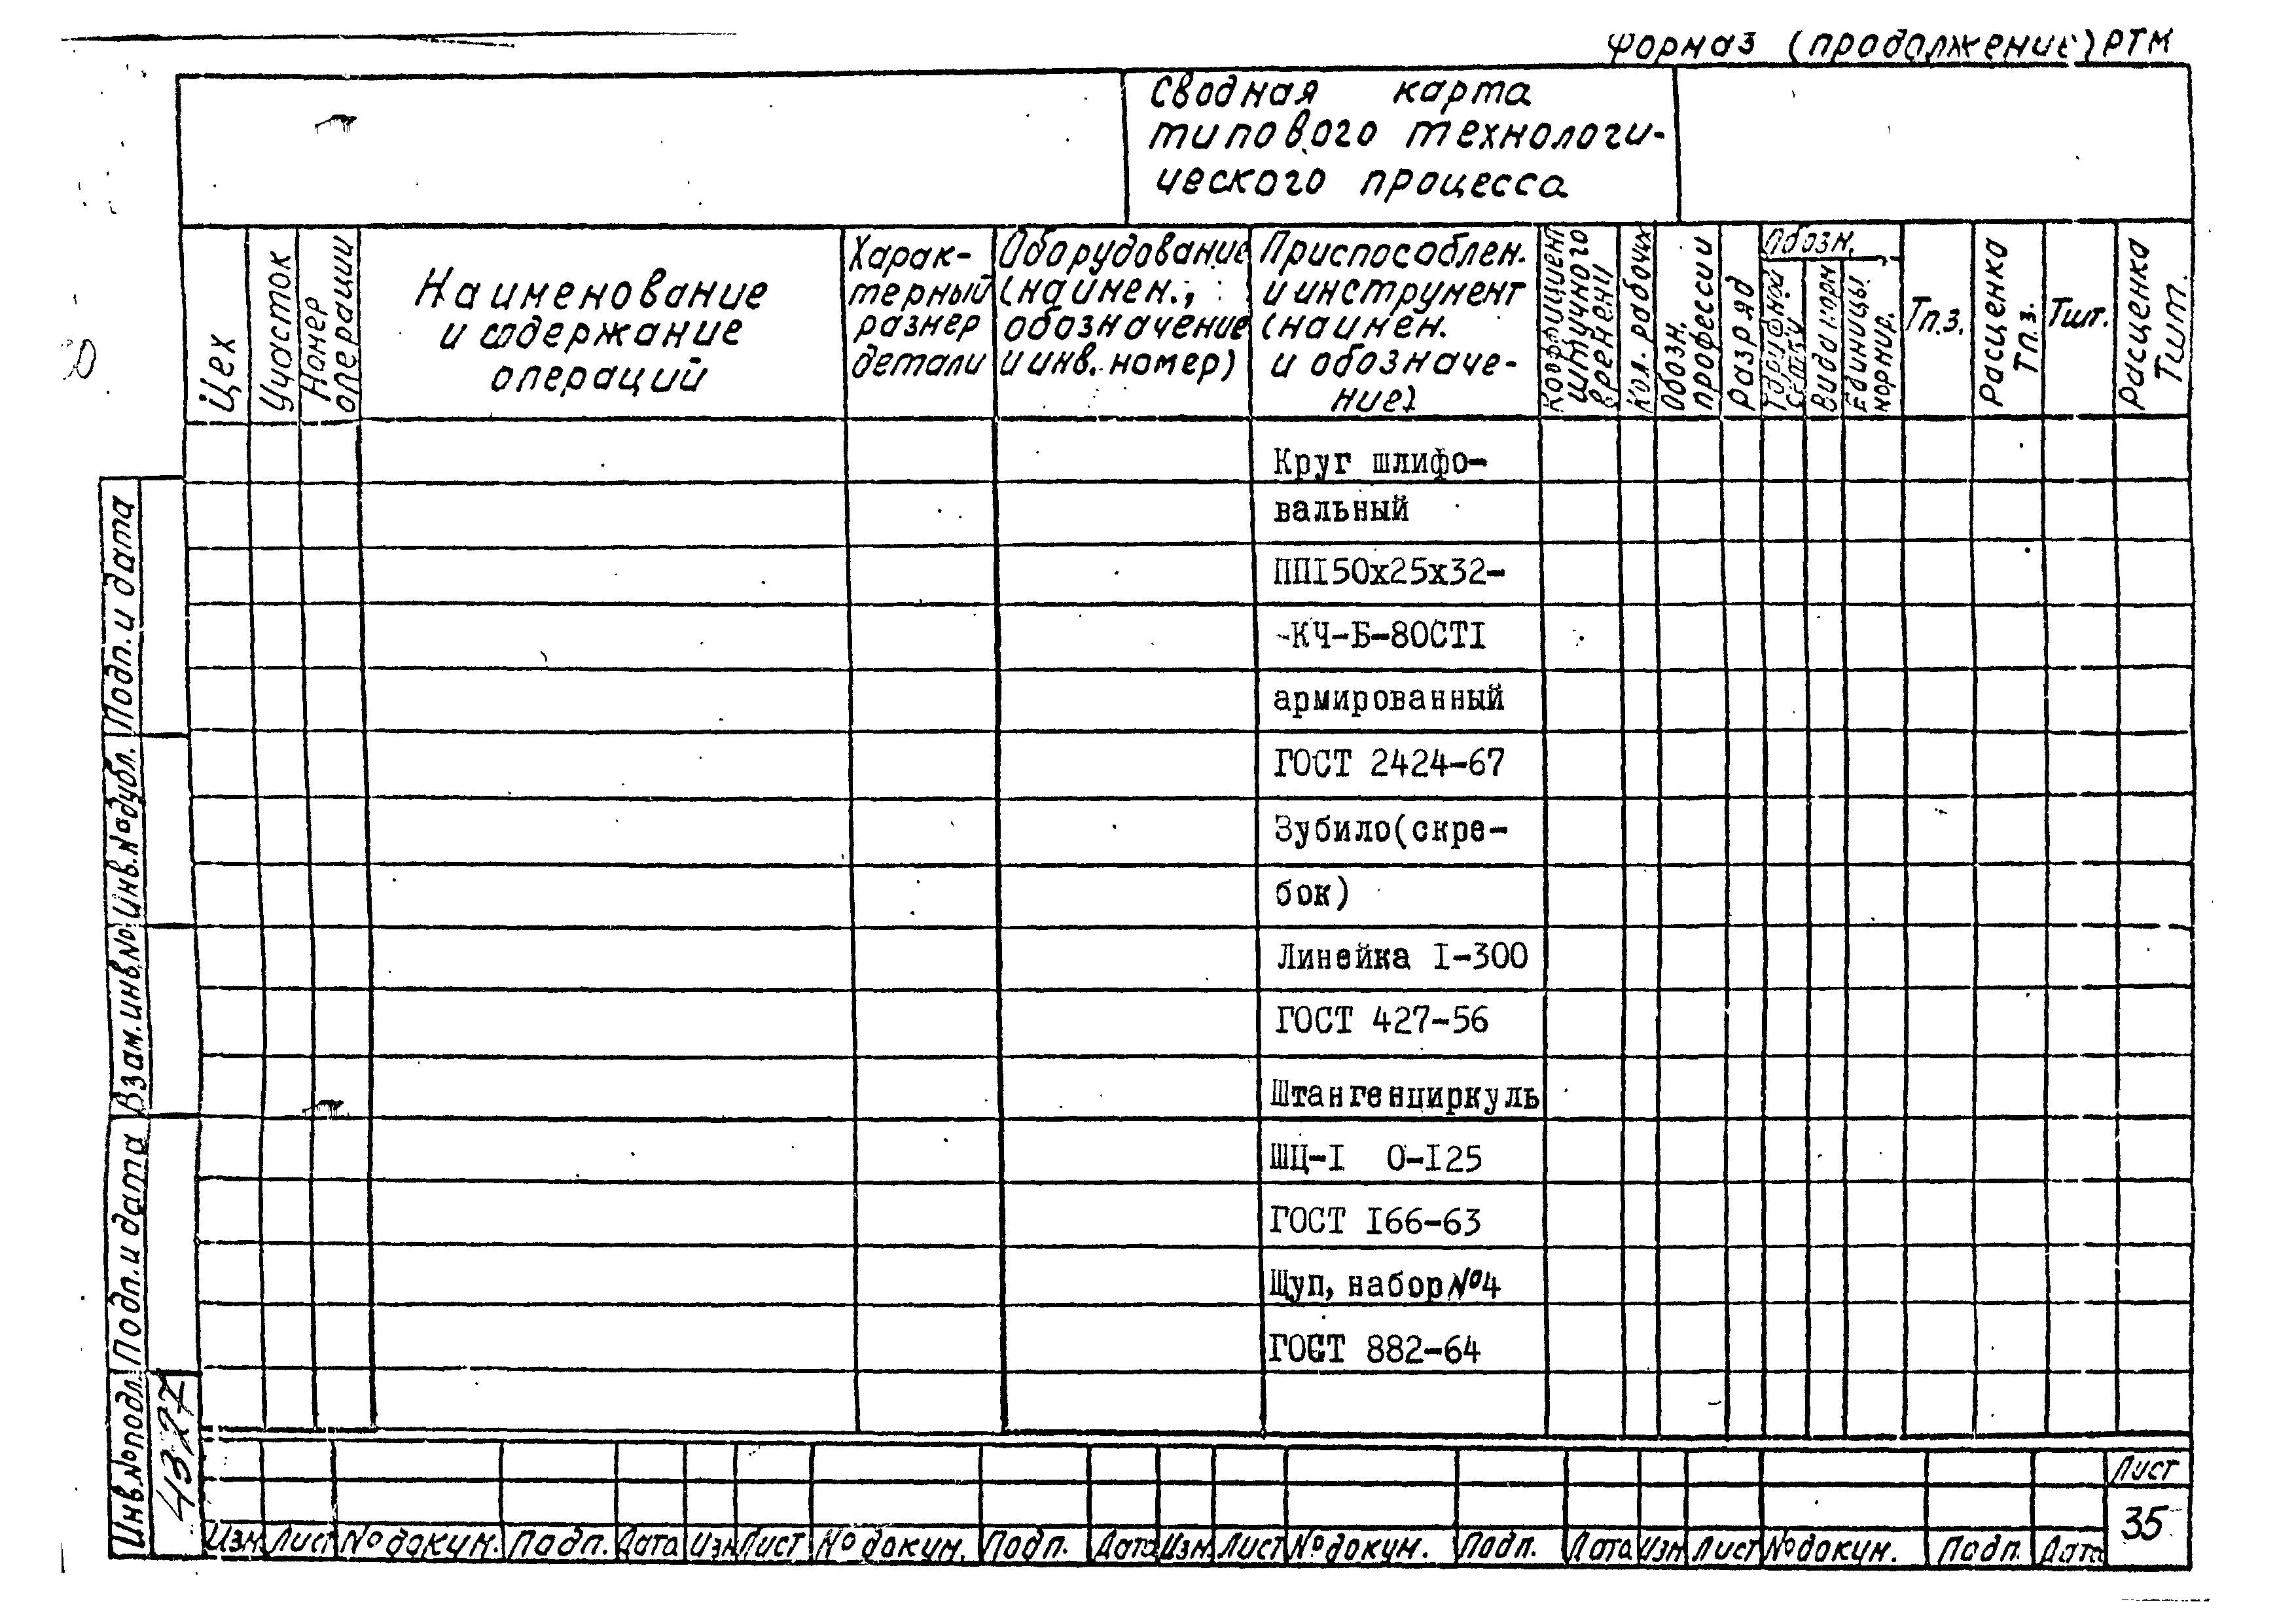 Форма 3 (продолжение) РТМ
Сводная карта
типового технологи-
ческого процесса
Цех
Участок
Номер
операции
Наименование
и содержание
операций
Харак-
терный
размер
детали
Оборудование
(наимен.,
обозначение
и инв. номер)
Приспособлен.
и инструмент
(наимен.
и обозначе-
ние)
Коэффициент
штучного
времени
Кол. рабочих
Обозн.
профессии
Разряд
Обозн.
Тарифной
сетки
Вида норм
Единицы
нормир.
Тп.з.
Расценка
Тп.з.
Тшт.
Расценка
Тшт.
Круг шлифо-
вальный
ПП150х25х32-
-КЧ-Б-80СТ1
армированный
ГОСТ 2424-67
Зубило(скре-
бок)
Линейка I-300
ГОСТ 427-56
Штангенциркуль
ШЦ-I 0-I25
ГОСТ I66-63
Щуп, набор №4
ГОСТ 882-64
Подп. и дата
Инв. № дубл.
Взам. инв. №
Подп. и дата
Инв. № подл.
4397
Изм Лист № докум. Подп. Дата Изм Лист № докум. Подп. Дата Изм. Лист № докум. Подп. Дата Изм Лист № докум. Подп. Дата
Лист
35